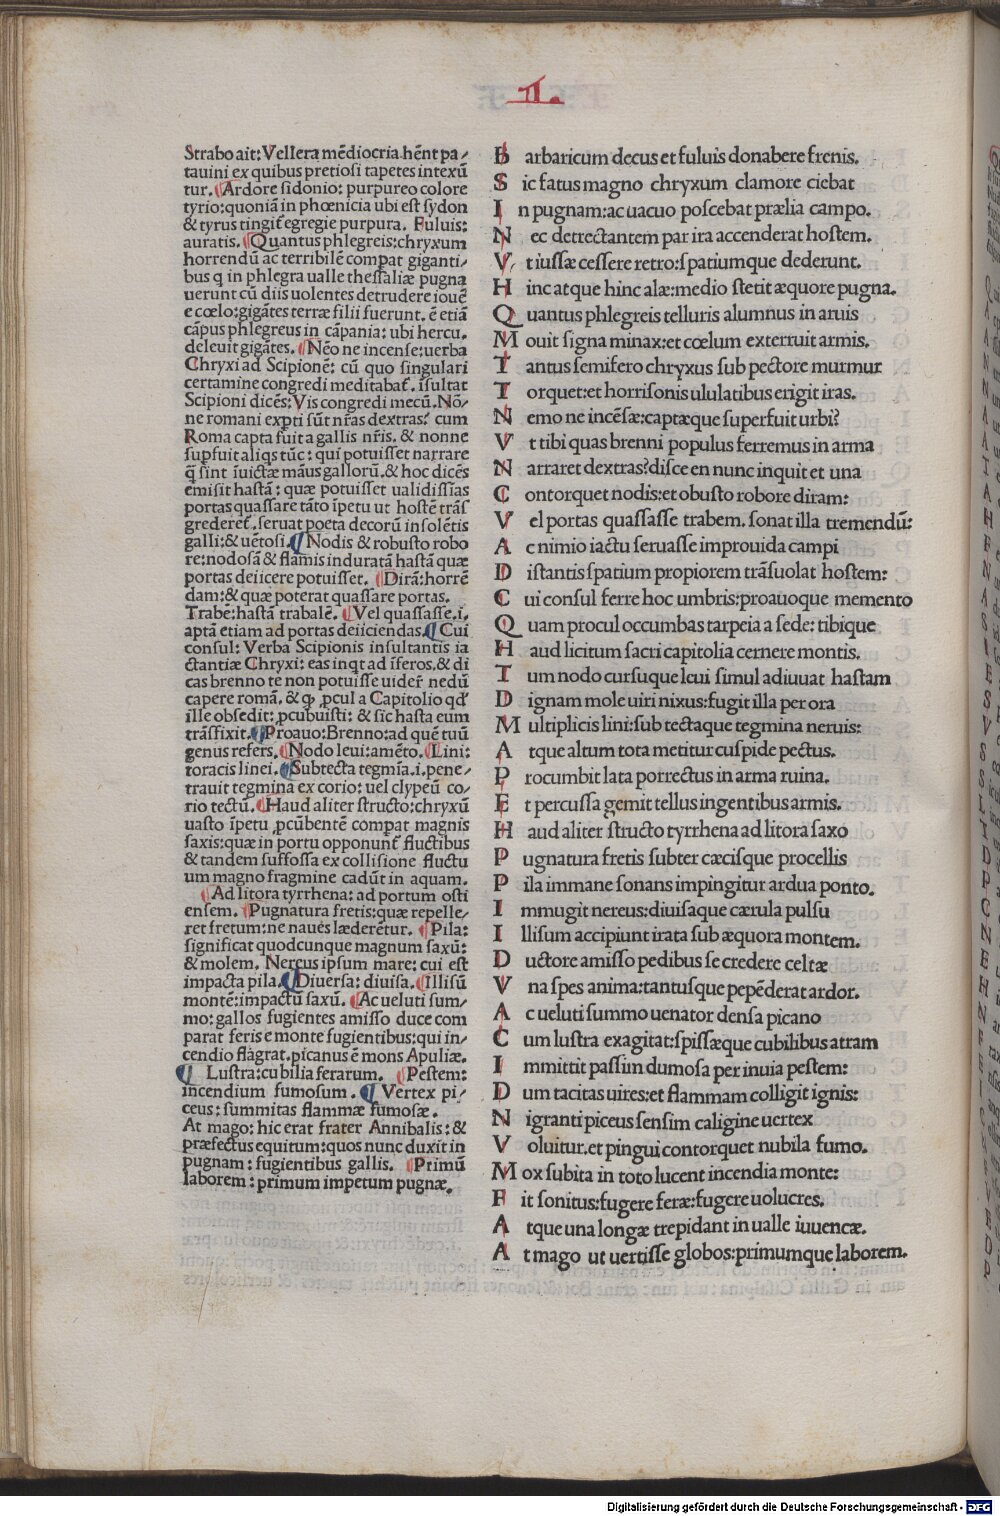 II.
Strabo ait: Vellera mēdiocria hēnt pa⸗
tauini ex quibus pretiosi tapetes intexū
tur. Ardore sidonio: purpureo colore
tyrio: quoniā in phœnicia ubi est sydon
& tyrus tingit̃ egregie purpura. Fuluis:
auratis. Quantus phlegreis: chryxum
horrendū ac terribilē compat giganti⸗
bus q in phlegra ualle thessaliæ pugna
uerunt cū diis uolentes detrudere iouē
e cœlo: gigātes terræ filii fuerunt. ē etiā
cāpus phlegreus in cāpania: ubi hercu.
deleuit gigātes. Nēo ne incense: uerba
Chryxi ad Scipionē: cū quo singulari
certamine congredi meditabat̃. isultat
Scipioni dicēs: Vis congredi mecū. Nō⸗
ne romani expti sūt nr̃as dextras: cum
Roma capta fuit a gallis nr̃is. & nonne
supfuit aliqs tūc: qui potuisset narrare
q̄ sint īuictæ māus gallorū. & hoc dicēs
emisit hastā: quæ potuisset ualidissīas
portas quassare tāto īpetu ut hostē trās
grederet̃. seruat poeta decorū insolētis
galli: & uētosi. Nodis & robusto robo
re: nodosā & flamis induratā hastā quæ
portas deiicere potuisset. Dirā: horrē
dam: & quæ poterat quassare portas.
Trabē: hastā trabalē. Vel quassasse. i.
aptā etiam ad portas deiiciendas. Cui
consul: Verba Scipionis insultantis ia
ctantiæ Chryxi: eas inqt ad īferos. & di
cas brenno te non potuisse uider̃ nedū
capere romā. & ꝙ ꝓcul a Capitolio qd̓
ille obsedit: ꝓcubuisti: & sic hasta eum
trāsfixit. Proauo: Brenno: ad quē tuū
genus refers. Nodo leui: amēto. Lini:
toracis linei. Subtecta tegmīa. i. pene⸗
trauit tegmina ex corio: uel clypeū co⸗
rio tectū. Haud aliter structo: chryxū
uasto īpetu ꝓcūbentē compat magnis
saxis: quæ in portu opponunt̃ fluctibus
& tandem suffossa ex collisione fluctu
um magno fragmine cadūt in aquam.
Ad litora tyrrhena: ad portum osti
ensem. Pugnatura fretis: quæ repelle⸗
ret fretum: ne naues læderētur. Pila:
significat quodcunque magnum saxū:
& molem. Nereus ipsum mare: cui est
impacta pila. Diuersa: diuisa. Illisū
montē: impactū saxū. Ac ueluti sum⸗
mo: gallos fugientes amisso duce com
parat feris e monte fugientibus: qui in⸗
cendio flāgrat. picanus ē mons Apuliæ.
Lustra: cubilia ferarum. Pestem:
incendium fumosum. Vertex pi⸗
ceus: summitas flammæ fumosæ.
At mago: hic erat frater Annibalis: &
præfectus equitum: quos nunc duxit in
pugnam: fugientibus gallis. Primū
laborem: primum impetum pugnæ.
B arbaricum decus et fuluis donabere frenis.
S ic fatus magno chryxum clamore ciebat
I n pugnam: ac uacuo poscebat prælia campo.
N ec detrectantem par ira accenderat hostem.
V t iussæ cessere retro: spatiumque dederunt.
H inc atque hinc alæ: medio stetit æquore pugna.
Q uantus phlegreis telluris alumnus in aruis
M ouit signa minax: et cœlum exterruit armis.
T antus semifero chryxus sub pectore murmur
T orquet: et horrisonis ululatibus erigit iras.
N emo ne incēsæ: captæque superfuit urbi?
V t tibi quas brenni populus ferremus in arma
N arraret dextras? disce en nunc inquit et una
C ontorquet nodis: et obusto robore diram:
V el portas quassasse trabem. sonat illa tremendū:
A c nimio iactu seruasse improuida campi
D istantis spatium propiorem trāsuolat hostem:
C ui consul ferre hoc umbris: proauoque memento
Q uam procul occumbas tarpeia a sede: tibique
H aud licitum sacri capitolia cernere montis.
T um nodo cursuque leui simul adiuuat hastam
D ignam mole uiri nixus: fugit illa per ora
M ultiplicis lini: sub tectaque tegmina neruis:
A tque altum tota metitur cuspide pectus.
P rocumbit lata porrectus in arma ruina.
E t percussa gemit tellus ingentibus armis.
H aud aliter structo tyrrhena ad litora saxo
P ugnatura fretis subter cæcisque procellis
P ila immane sonans impingitur ardua ponto.
I mmugit nereus: diuisaque cærula pulsu
I llisum accipiunt irata sub æquora montem.
D uctore amisso pedibus se credere celtæ
V na spes anima: tantusque pepēderat ardor.
A c ueluti summo uenator densa picano
C um lustra exagitat: spissæque cubilibus atram
I mmittit passim dumosa per inuia pestem:
D um tacitas uires: et flammam colligit ignis:
N igranti piceus sensim caligine uertex
V oluitur. et pingui contorquet nubila fumo.
M ox subita in toto lucent incendia monte:
F it sonitus: fugere feræ: fugere uolucres.
A tque una longæ trepidant in ualle iuuencæ.
A t mago ut uertisse globos: primumque laborem.
Digitalisierung gefördert durch die Deutsche Forschungsgemeinschaft - DFG